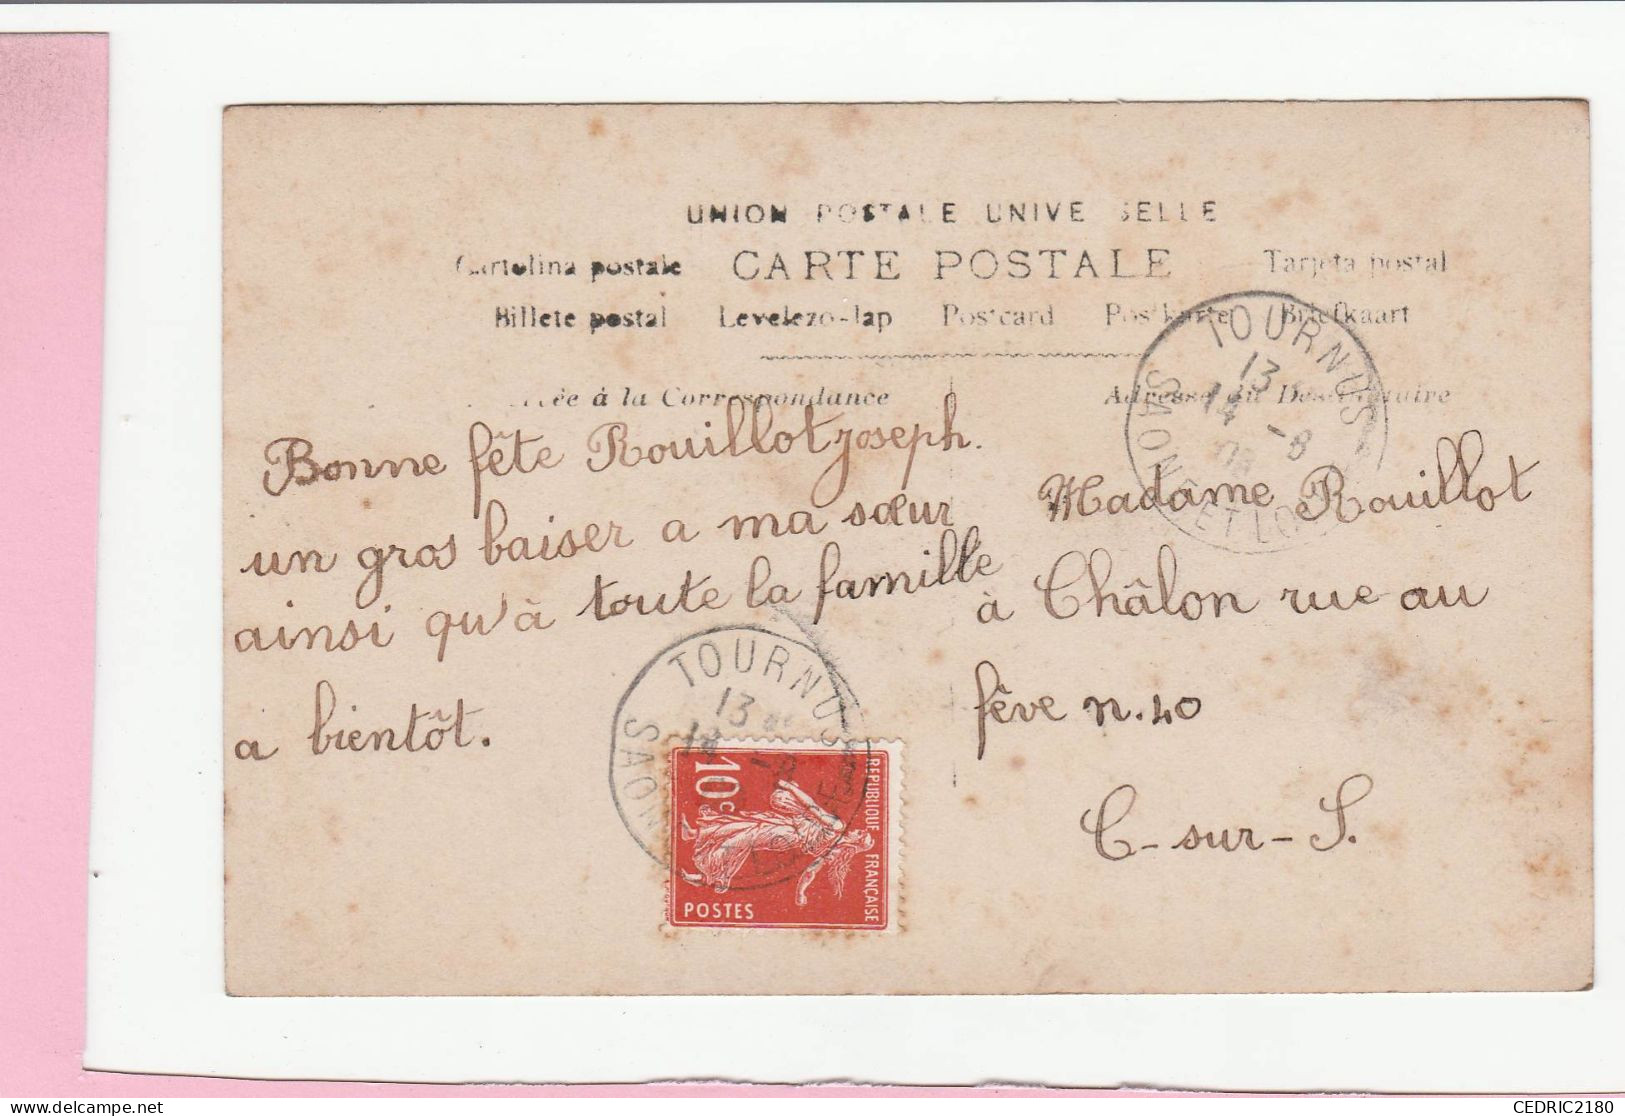 UNION POSTALE UNIVE SELLE
Cartolina postale CARTE POSTALE Tarjeta postal
Billete postal Levelezo-lap Postcard Postkarte Briefkaart
à la Correspondance Adresse du Destinataire
Bonne fête Rouillot joseph.
un gros baiser a ma sœur
ainsi qu'à toute la famille
a bientôt.
Madame Rouillot
à Châlon rue au
fêve n. 40
C-sur-S.
TOURNUS
13
14 -8
SAONE ET LOIRE
TOURNUS
13
14
SAONE
10c
REPUBLIQUE FRANÇAISE
POSTES
CEDRIC2180